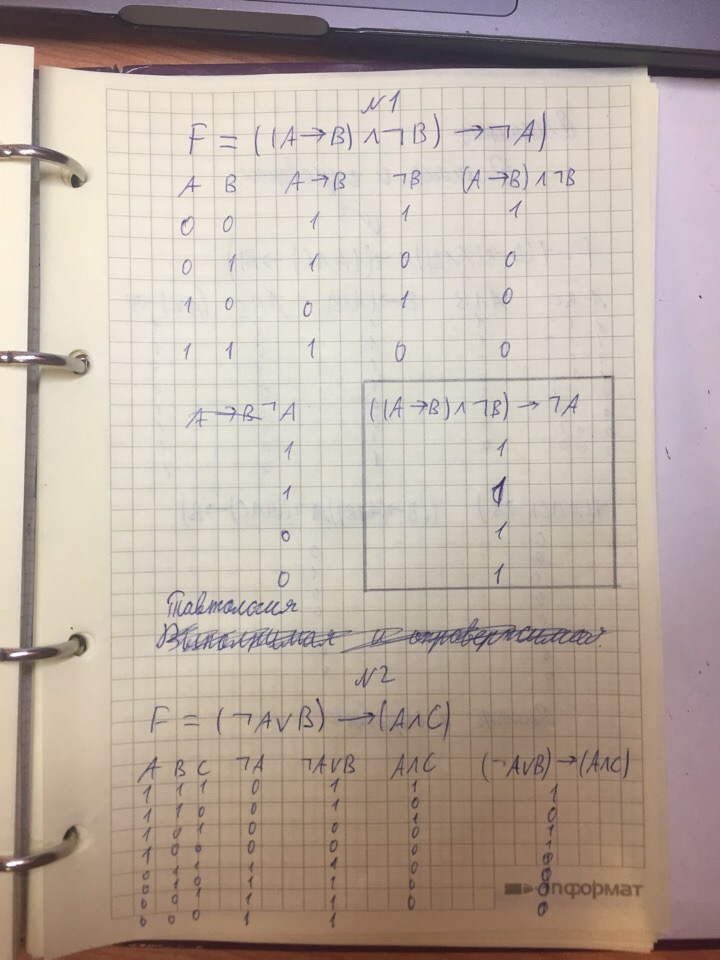 N1
F = ((A→B) ∧ ¬B) → ¬A)
A B A→B ¬B (A→B) ∧ ¬B
0 0 1 1 1
0 1 1 0 0
1 0 0 1 0
1 1 1 0 0
A→B ¬A ((A→B) ∧ ¬B) → ¬A
1 1
1 1
0 1
0 1
Тавтология
Выполнимая и опровержимая.
N2
F = (¬A∨B) → (A∧C)
A B C ¬A ¬A∨B A∧C (¬A∨B) → (A∧C)
1 1 1 0 1 1 1
1 1 0 0 1 0 0
1 0 1 0 0 1 1
1 0 0 0 0 0 1
0 1 1 1 1 0 0
0 1 0 1 1 0 0
0 0 1 1 1 0 0
0 0 0 1 1 0
информат